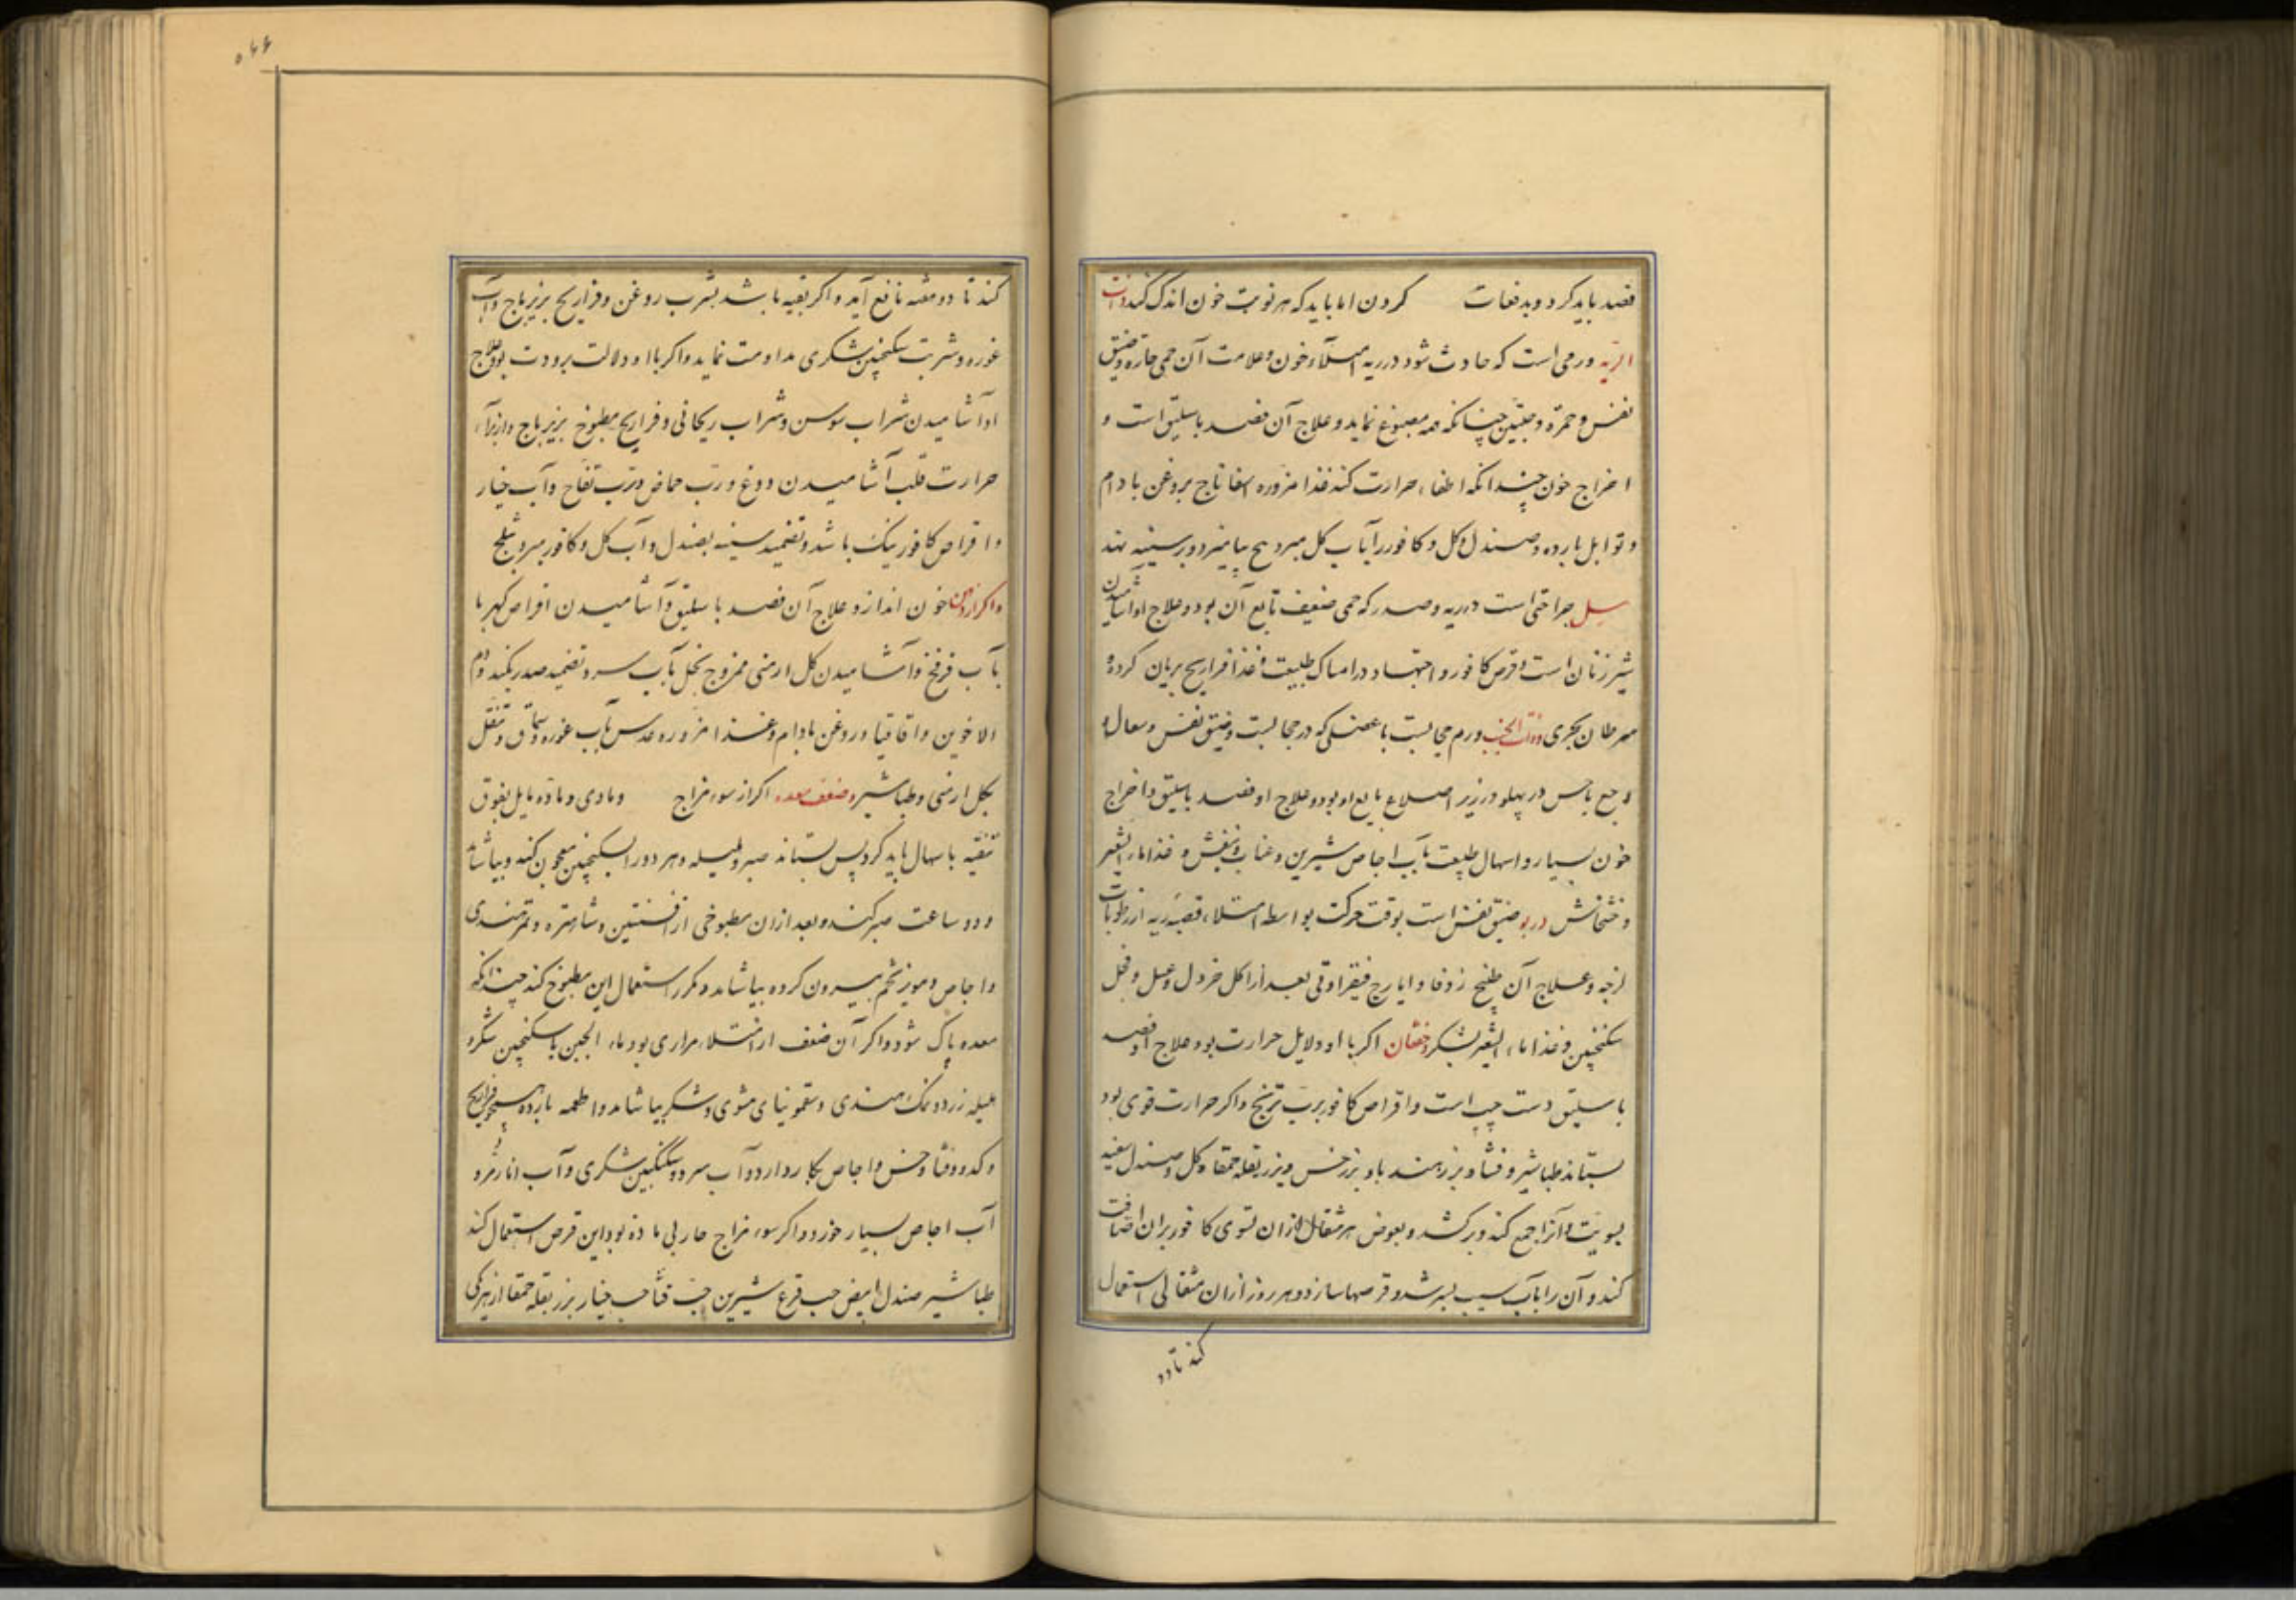 فصد باید کرد و بدفعات کردن اما باید که هر نوبت خون اندک کنند و ذات
الریه ورمی است که حادث شود در ریه از امتلاء خون و علامت آن حمی حاره و ضیق
نفس و حمرة وجنتین چنانکه همه مصبوغ نماید و علاج آن فصد باسلیق است و
اخراج خون چندانکه اطفاء حرارت کند غذا مزوره اسفاناج بروغن بادام
و توابل بارده و صندل و کل و کافور را بآب کل مبرد بیخ بیامیزد و بر سینه نهد
سل جراحتی است در ریه و صدر که حمی ضعیف تابع آن بود و علاج او آشامیدن
شیر زنان است و قرص کافور و اجتهاد در امساک طبیعت و غذا فراریج بریان کرده و
سرطان بحری و ذات الجنب ورم حجابست یا عضلی که در حجابست و ضیق نفس و سعال و
وجع ناخس در پهلو در زیر اضلاع تابع او بود و علاج او فصد باسلیق و اخراج
خون بسیار و اسهال طبیعت بآب اجاص شیرین و عناب و بنفش و غذا ماء الشعیر
و خشخاش و ربو ضیق نفس است بوقت حرکت بواسطه امتلاء قصبه ریه از رطوبات
لزجه و علاج آن طبیخ زوفا و ایارج فیقرا و قی بعد از اکل خردل و عسل و فجل
سکنجبین و غذا ماء الشعیر بشکر و خفقان اکر با او دلایل حرارت بود علاج او فصد
باسلیق دست چپ است و اقراص کافور برب ترنج و اکر حرارت قوی بود
بستاند طباشیر و قثا و بزر هندبا و بزر خس و بزر بقله حمقا و کل و صندل سفید
بسویت و آنرا جمع کند و برکشد و بعوض هر مثقال از آن تسوی کافور بر آن اضافت
کند و آن را بآب سیب بسرشد و قرصها سازد و هر روز از آن مثقالی استعمال
کند تا دو
۵۶۶
کند تا دو هفته نافع آید و اکر بقیه باشد بشرب روغن و فراریج بزیرباج و آب
غوره و شربت سکنجبین شکری مداومت نماید و اکر با او دلالت برودت بود علاج
او آشامیدن شراب سوسن و شراب ریحانی و فراریج مطبوخ بزیرباج و از برای
حرارت قلب آشامیدن دوغ و رب حماض و رب تفاح و آب خیار
و اقراص کافور نیک باشد و تضمید سینه بصندل و آب کل و کافور مبرد بثلج
و اکر از دهن خون اندازد علاج آن فصد باسلیق و آشامیدن اقراص کهربا
بآب فرفخ و آشامیدن کل ارمنی ممزوج بخل بآب سرد و تضمید صدر بکندر و دم
الاخوین و اقاقیا و روغن بادام و غذا مزوره عدس بآب غوره و سماق و تنقل
بکل ارمنی و طباشیر و ضعف معده اکر از سوء مزاج و مادی و ماده مایل بفوق
تنقیه باسهال باید کرد پس بستاند صبر و هلیله و هر دو را بسکنجبین معجون کند و بیاشامد
و دو ساعت صبر کند و بعد از آن مطبوخی از افسنتین و شاهتره و تمر هندی
و اجاص و مویز تخم بیرون کرده بیاشامد و مکرر استعمال این مطبوخ کند چندانکه
معده پاک شود و اکر آن ضعف از امتلاء مراری بود ماء الجبن با سکنجبین شکری و
هلیله زرد و نمک هندی و سقمونیای مشوی و شکر بیاشامد و اطعمه بارده همچو فراریج
و کدو و قثا و خس و اجاص بکار دارد و آب سرد و سکنجبین شکری و آب انار مز و
آب اجاص بسیار خورد و اکر سوء مزاج حار بی ماده بود این قرص استعمال کند
طباشیر صندل ابیض حب قرع شیرین حب قثا حب خیار بزر بقله حمقا از هر یکی